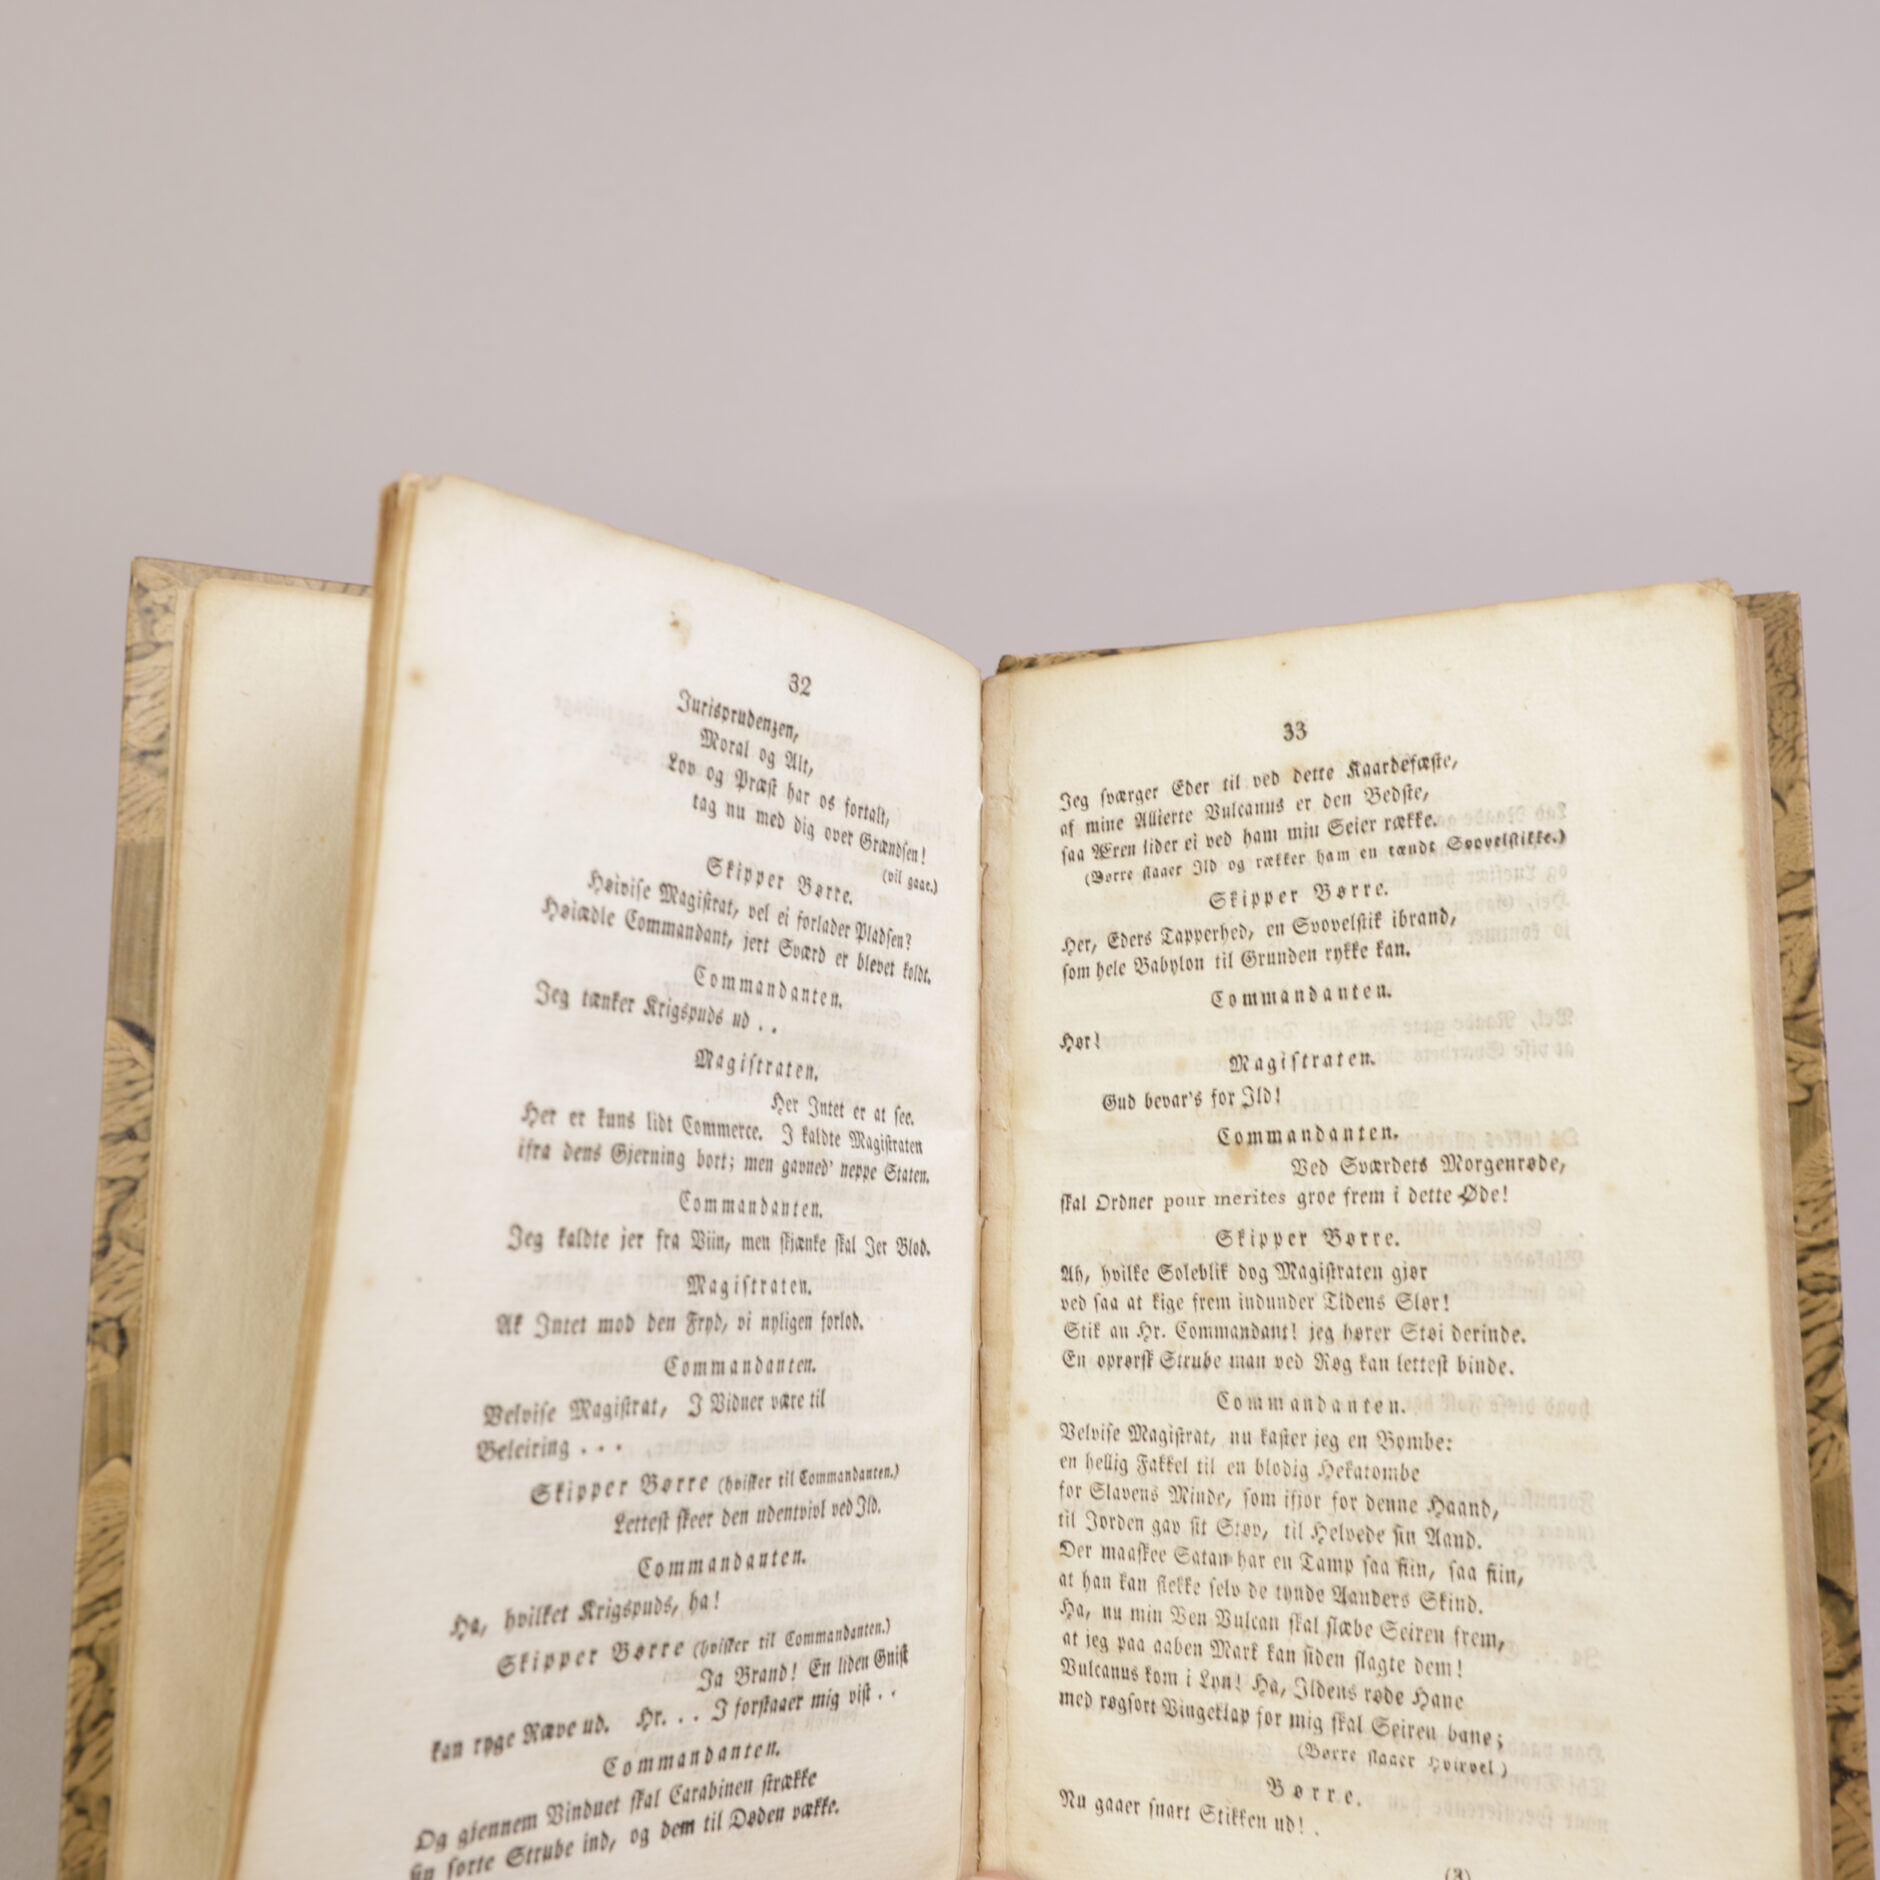 32
Jurisprudenzen,
Moral og Alt,
Lov og Præst har os fortalt,
tag nu med dig over Grændsen!
(vil gaae.)
Skipper Børre.
Høivise Magistrat, vel ei forlader Pladsen?
Høiædle Commandant, jert Sværd er blevet koldt.
Commandanten.
Jeg tænker Krigspuds ud . .
Magistraten.
Her Intet er at see.
Her er kuns lidt Commerce. I kaldte Magistraten
ifra dens Gjerning bort; men gavned' neppe Staten.
Commandanten.
Jeg kaldte jer fra Viin, men skjænke skal Jer Blod.
Magistraten.
Ak Intet mod den Fryd, vi nyligen forlod.
Commandanten.
Velvise Magistrat, I Vidner være til
Beleiring . . .
Skipper Børre (hvisker til Commandanten.)
Lettest skeer den udentvivl ved Ild.
Commandanten.
Ha, hvilket Krigspuds, ha!
Skipper Børre (hvisker til Commandanten.)
Ja Brand! En liden Gnist
kan ryge Ræve ud. Hr. . . I forstaaer mig vist . .
Commandanten.
Og gjennem Vinduet skal Carabinen strække
sin sorte Strube ind, og dem til Døden vække.
33
Jeg sværger Eder til ved dette Kaardefæste,
af mine Allierte Vulcanus er den Bedste,
saa Æren lider ei ved ham min Seier række.
(Børre slaaer Ild og rækker ham en tændt Svovelstikke.)
Skipper Børre.
Her, Eders Tapperhed, en Svovelstik ibrand,
som hele Babylon til Grunden rykke kan.
Commandanten.
Hør!
Magistraten.
Gud bevar's for Ild!
Commandanten.
Ved Sværdets Morgenrøde,
skal Ordner pour merites groe frem i dette Øde!
Skipper Børre.
Ah, hvilke Soleblik dog Magistraten gjør
ved saa at kige frem indunder Tidens Slør!
Stik an Hr. Commandant! jeg hører Støi derinde.
En oprørsk Strube man ved Røg kan lettest binde.
Commandanten.
Velvise Magistrat, nu kaster jeg en Bombe:
en hellig Fakkel til en blodig Hekatombe
for Slavens Minde, som ifjor for denne Haand,
til Jorden gav sit Støv, til Helvede sin Aand.
Der maaskee Satan har en Tamp saa fiin, saa fiin,
at han kan flekke selv de tynde Aanders Skind.
Ha, nu min Ven Vulcan skal slæbe Seiren frem,
at jeg paa aaben Mark kan siden slagte dem!
Vulcanus kom i Lyn! Ha, Ildens røde Hane
med røgsort Vingeklap for mig skal Seiren bane;
(Børre slaaer Hvirvel)
Børre.
Nu gaaer snart Stikken ud! .
(3)